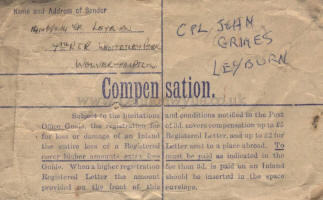 Name and Address of Sender
CPL, JEAN
GRIMES
LEYBURN
Compensation.
Subject to the limitations and conditions notified in the Post
Office Guide, the registration fee of 3d. covers compensation up to £5
for loss or damage of an Inland Registered Letter, and up to £2 for
the entire loss of a Registered Letter sent to a place abroad. To
cover higher amounts extra fees must be paid as indicated in the
Guide. When a higher registration fee than 3d. is paid on an Inland
Registered Letter the amount should be inserted in the space
provided on the front of this envelope.